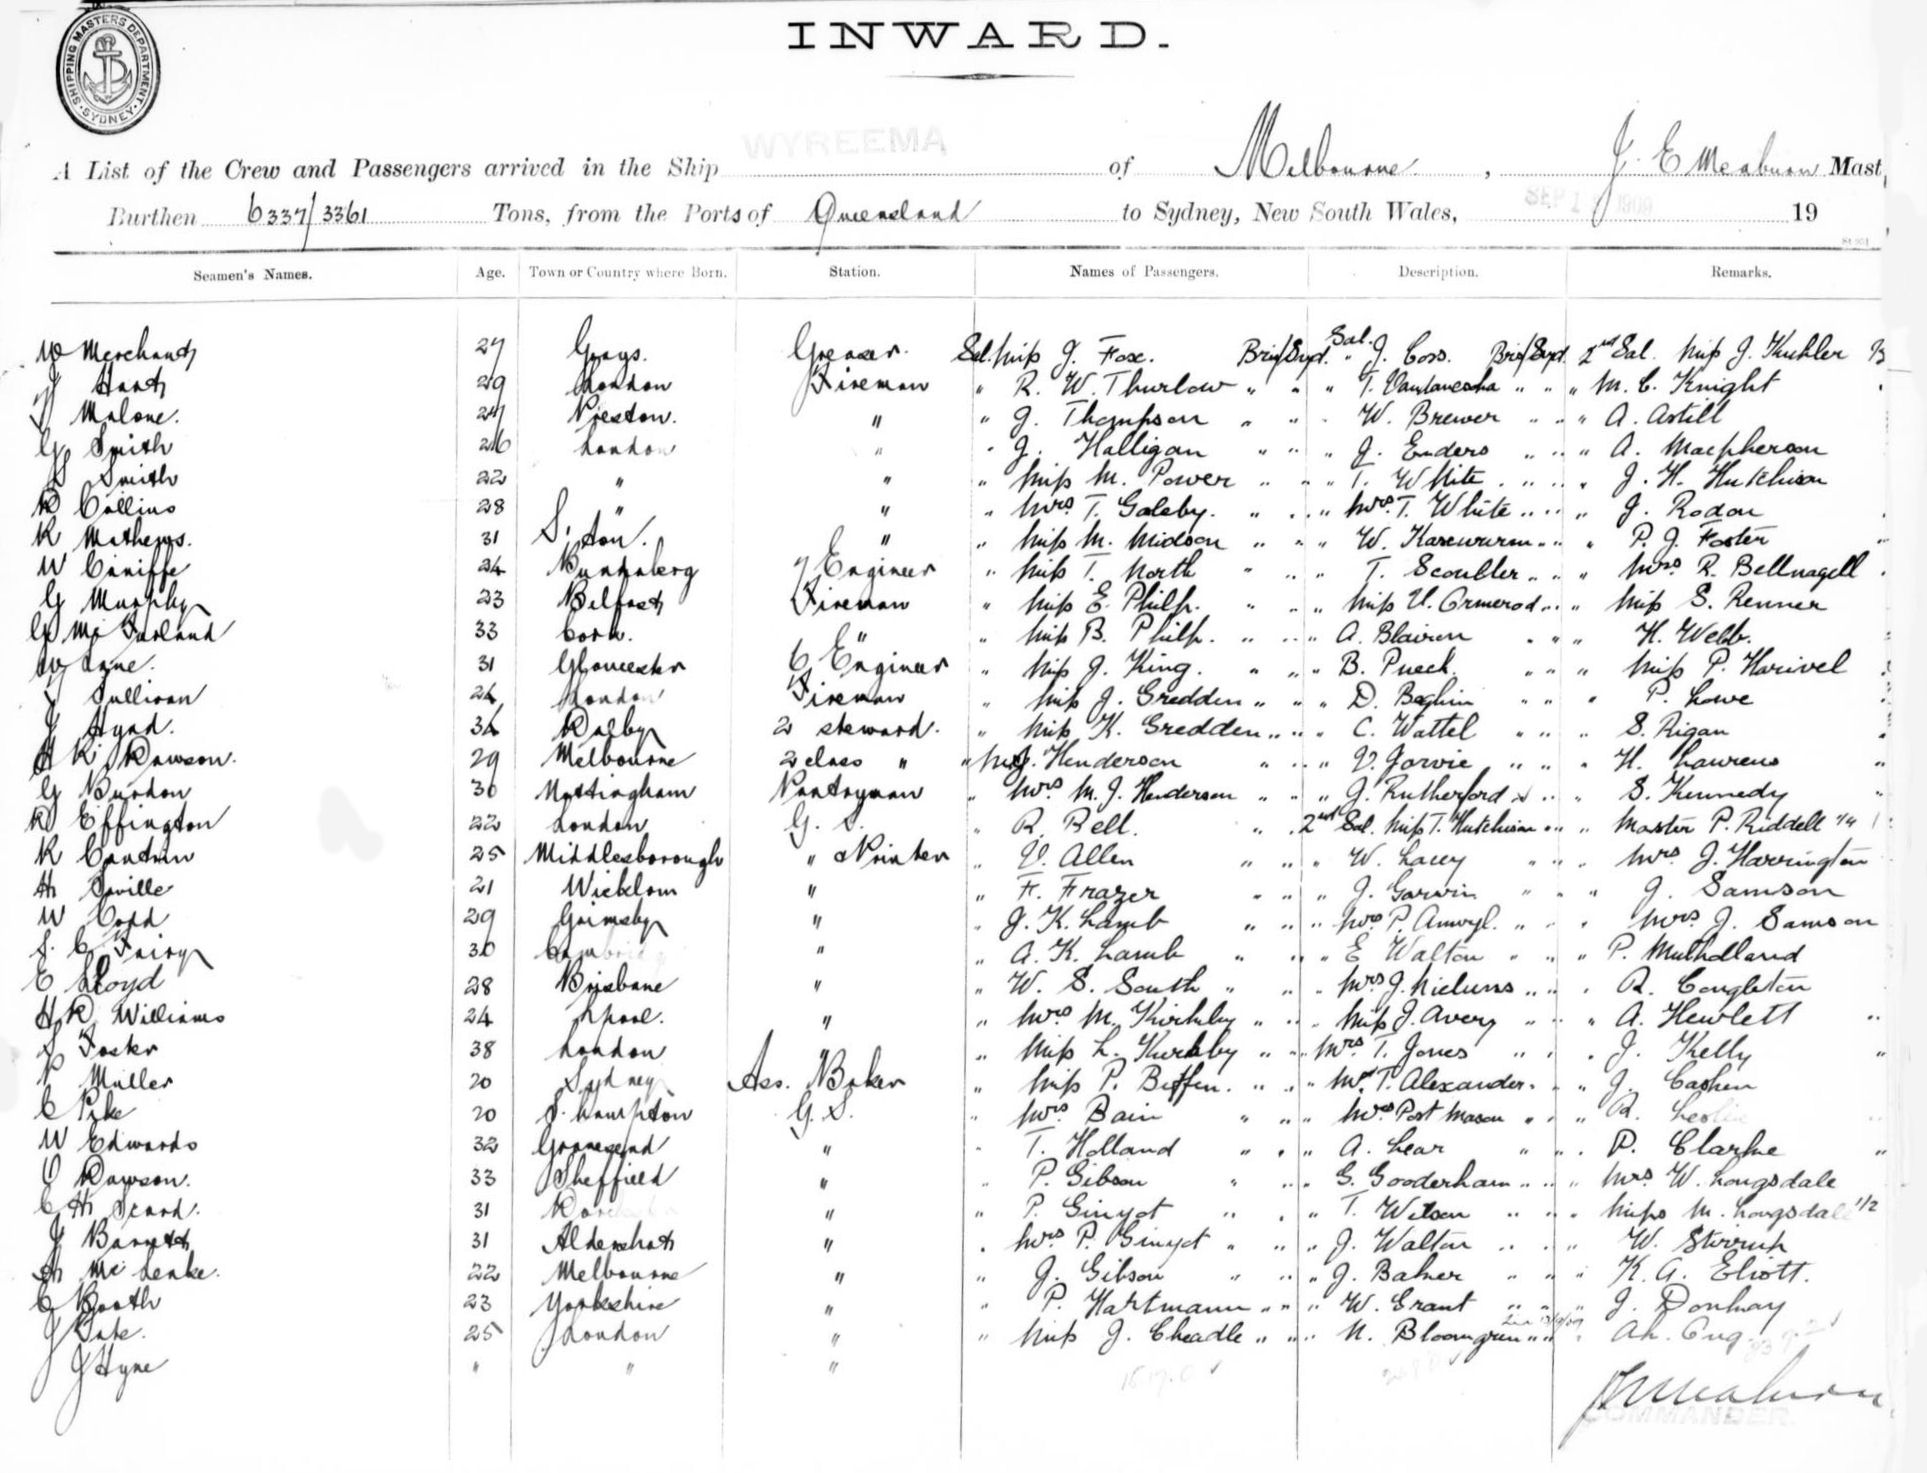 INWARD.
SHIPPING MASTERS DEPARTMENT. SYDNEY.
WYREEMA
A List of the Crew and Passengers arrived in the Ship of Melbourne, J. E Meaburn Mast
Burthen 6337/3361 Tons, from the Ports of Queensland to Sydney, New South Wales, SEP 1909 19
Seamen's Names. Age. Town or Country where Born. Station. Names of Passengers. Description. Remarks.
W Merchant 27 Grays. Greaser. Sal. Miss J. Fox. Bris/Syd. Sal. " J. Coss. Bris/Syd. 2nd Sal. Miss J. Kuhler B
J Hunt 29 London Fireman " R. W. Thurlow " " " T. " " " M. C. Knight
J Malone. 27 Preston. " " J. Thompson " " " W. Brewer " " " A. Astill
G Smith 26 London " " J. Halligan " " " J. Enders " " " A. Macpherson
J Smith 22 " " " Miss M. Power " " " T. White " " " J. H. Hutchison
R Collins 28 " " " Mrs T. Goleby. " " " Mrs T. White " " " J. Rodon
R Mathews. 31 S. ton. " " Miss M. Midson " " " W. " " " P. J. Foster
W Cuniffe 24 Bundaberg 7 Engineer " Miss T. North " " " T. Scouller " " " Mrs R. Bellnagell
G Murphy 23 Belfast Fireman " Miss E. Philp. " " " Miss U. Ormerod " " " Miss S. Renner
G Mc Farland 33 Cork. " " Miss B. Philp. " " " A. Blairon " " " H. Webb.
W Lane. 31 Gloucester 6 Engineer " Miss J. King. " " " B. Puech. " " " Miss P. Harivel
J Sullivan 24 London Fireman " Miss J. Gredden " " " D. Beghin " " " P. Lowe
J Hynd. 34 Dalby 2 steward. " Miss K. Gredden " " " C. Wattel " " " S. Rigan
H R Dawson. 29 Melbourne 2 class " " J. Henderson " " " V. Jarvie " " " H. Laurens "
G Burdon 30 Nottingham Pantryman " Mrs M. J. Henderson " " " J. Rutherford " " " S. Kennedy "
R Effington 22 London G. S. " R. Bell. " " 2nd Sal. Miss T. Hutchison " " " Master P. Riddell 1/4
R 25 Middlesborough " & Printer " V. Allen " " " W. Lacey " " " Mrs J. Harrington
H Saville 21 Wicklow " " F. Frazer " " " J. Garvin " " " J. Samson
W Copp 29 Grimsby " " J. K. Lamb " " " Mrs P. Amwyl. " " " Mrs J. Samson
S. C. Fairy 30 Cambridg " " A. K. Lamb " " " E Walton " " " P. Mulholland
C Lloyd 28 Brisbane " " W. S. South " " " Mrs J. " " " R. Congleton
H R Williams 24 Lpool. " " Mrs M. Kirkby " " " Miss J. Avery " " " A. Hewlett "
J Foster 38 London " " Miss L. Kirkby " " " Mrs T. Jones " " " J. Kelly "
P Muller 20 Sydney Ass. Baker " Miss P. Biffen. " " " Mrs T. Alexander " " " J. Cashen
C Pike 20 S. hampton G. S. " Mrs Bain " " " Mrs Port Mason " " " R. Leslie
W Edwards 32 Gravesend " " T. Holland " " " A. Lear " " " P. Clarke "
C Dawson. 33 Sheffield " " P. Gibson " " " G. Gooderham " " " Mrs W. Longsdale
C H Scard. 31 " " P. Guyot " " " T. Wilson " " " Miss M. Longsdale 1/2
J Barrett 31 Aldershot " " Mrs P. Guyot " " " J. Walton " " " W. Stirrup
H Mc Lenke. 22 Melbourne " " J. Gibson " " " J. Baker " " " K. A. Eliott.
C Booth 23 Yorkshire " " P. Hartmann " " " W. Grant " " " J. Donhay
J Tate. 25 London " " Miss J. Cheadle " " " N. Bloomgren " " " Ah.
J Hyne " " "
COMMANDER.